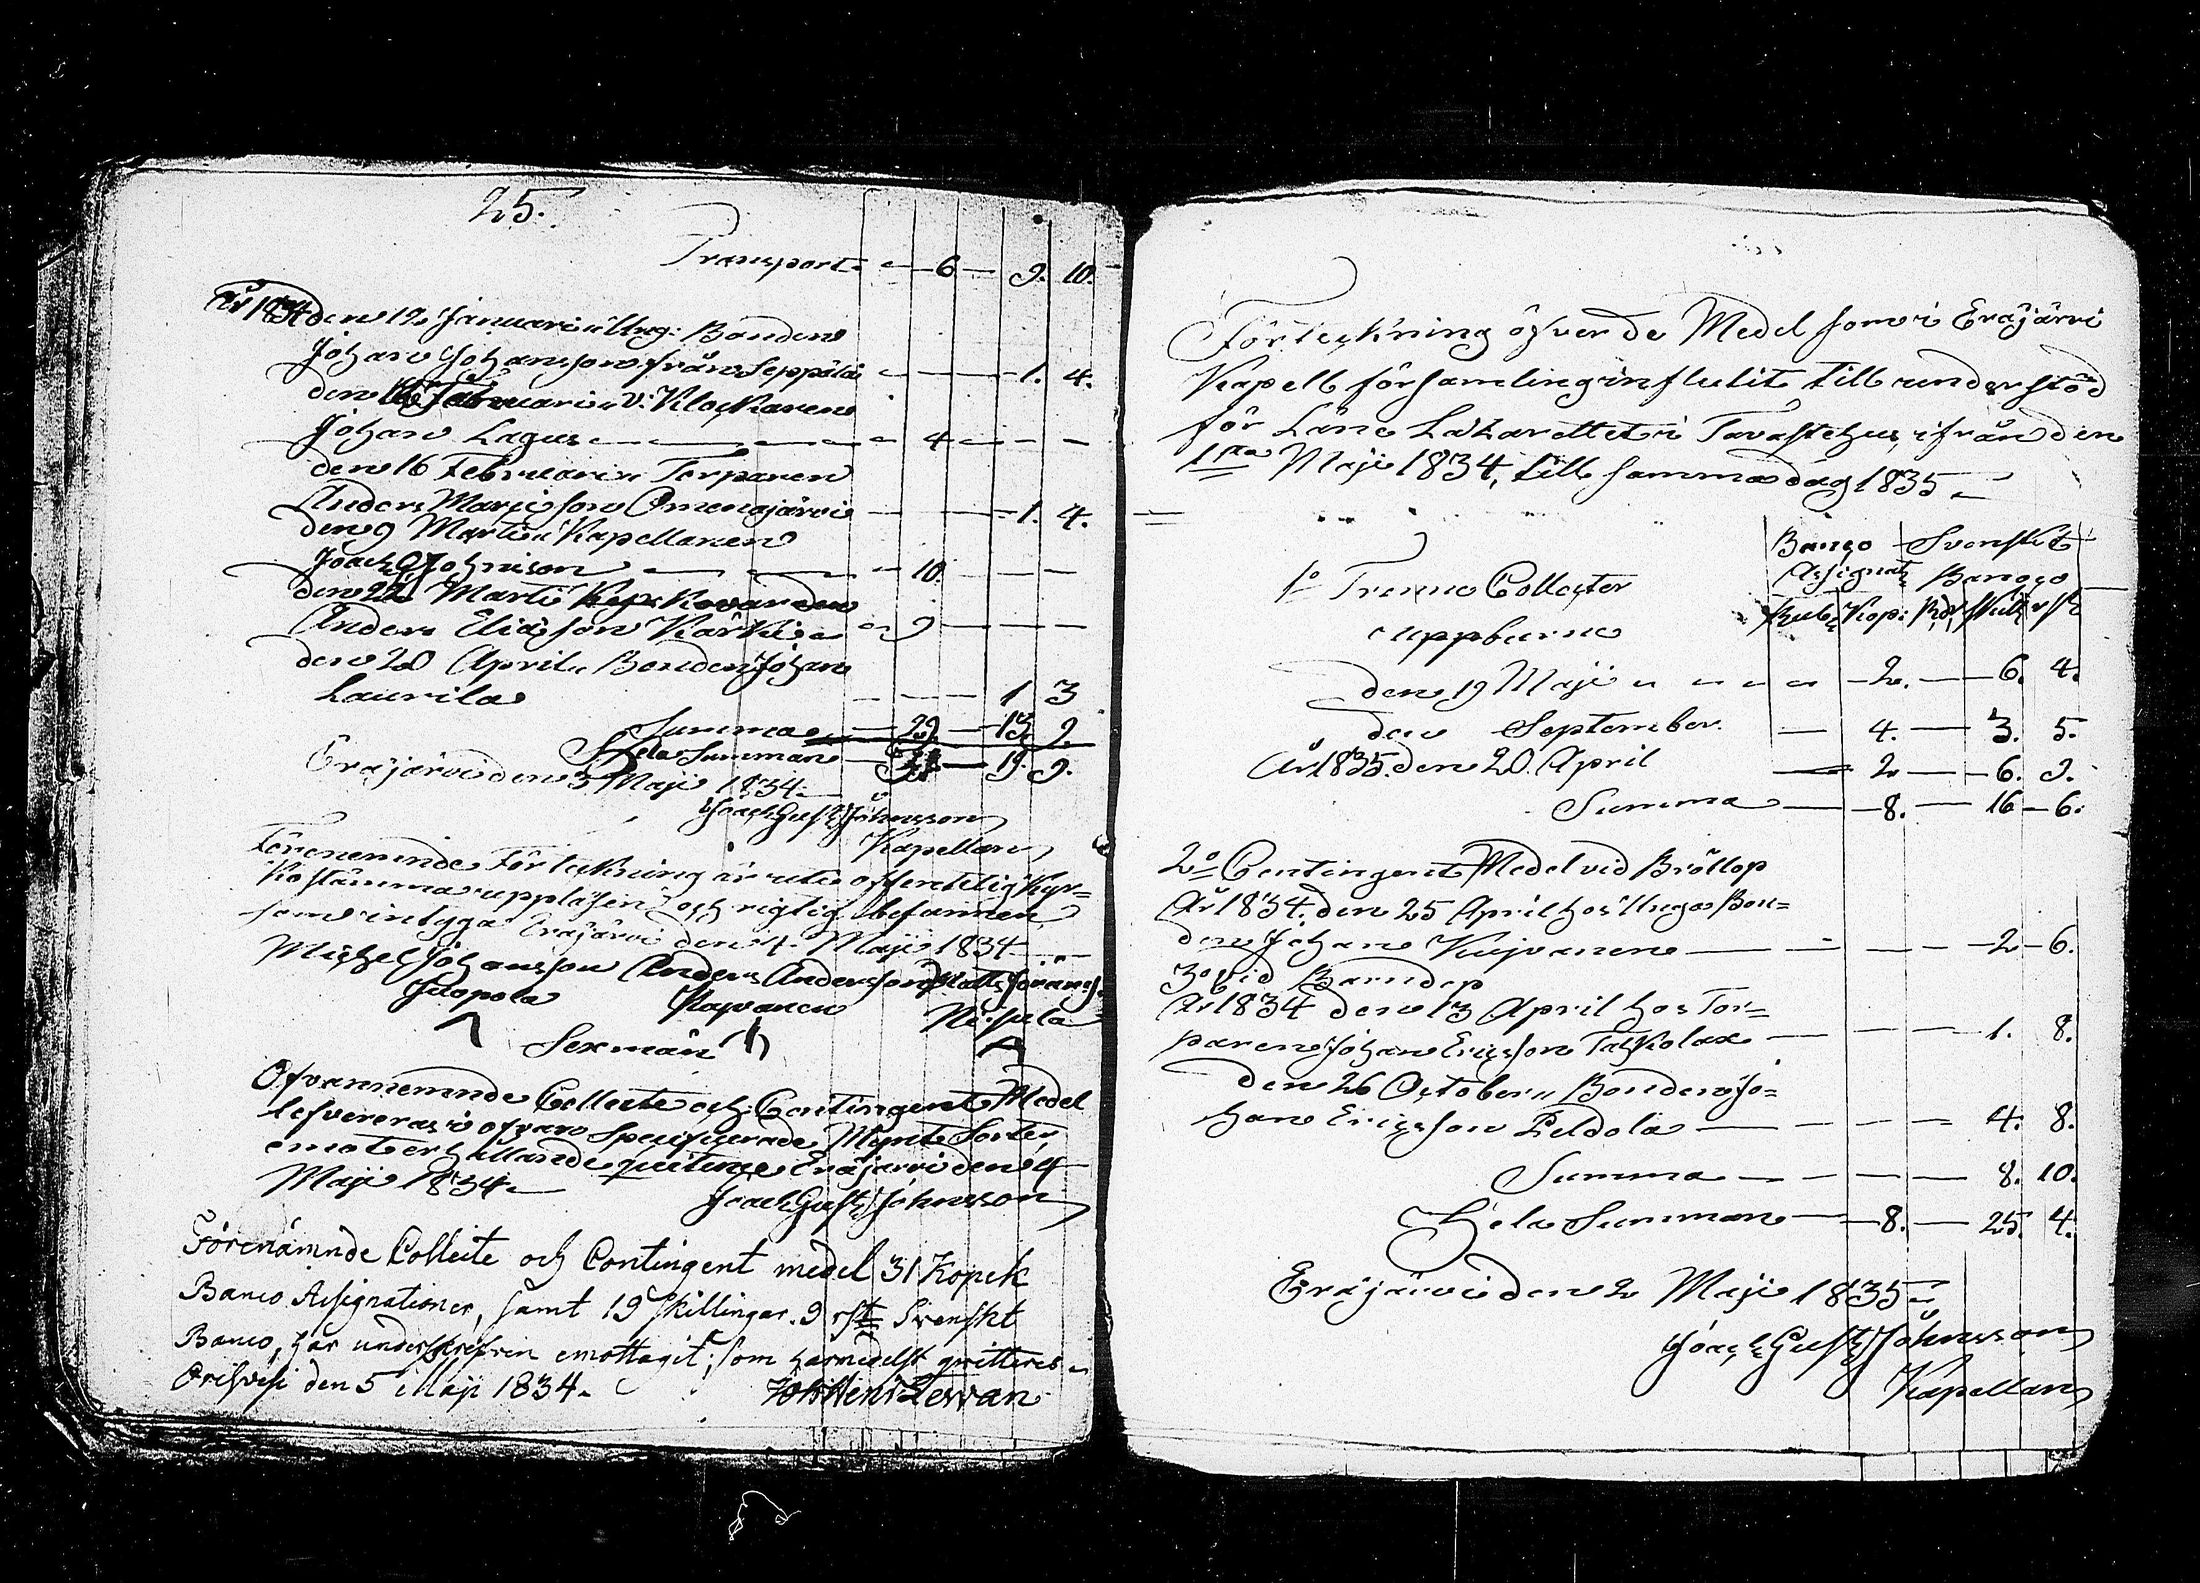 25.
Transport — 6 — 9. 10.
År 1834 den 12 Januarii Ung: Bonden
Johan Johansson från Seppälä — — — 1. 4.
den Februarii V: Klockaren
Johan Lagus — — — 4 — — —
den 16 Februarii Torparen
Anders Marjeson Omenajärvi — — — 1. 4.
den 9 Martii Kapellanen
Joach G Johnsson — — — 10. — —
den 22 Martii
Anders Eliæson Kärki — 9 — — —
den 20 April Bonden Johan
Laurila — — — 1 3
Summa — 29. — 13 9.
Hela Summan — 31 — 19. 9.
Eräjärvi den 3 Maji 1834.
Joach Gust Johnsson
Kapellan
Förenemnde Förteckning är uti offentelig Kyr=
kostämma uppläsen och rigtig befunnen,
som intyga Eräjärvi den 4 Maji 1834
Michel Johansson Anders Andersson Matts Göransson
Juopola Rapanen
Sexmän
Ofvannemnde Collecte och Contingent Medel
lefvereras i ofvan specificerade Mynt Sorter
emot erhållande quitence Eräjärvi den 4
Maji 1834.
Joach Gust Johnsson
Förenämnde Collecte och Contingent medel 31 Kopek
Banco Assignationer, samt 19 skillingar 9 rst Svenskt
Banco, har underskrifven emottagit; som härmedelst quitteras.
Orihvesi den 5 Maji 1834.
Joh Henr Lewan
Förteckning öfver de Medel som i Eräjärvi
Kapell församling influtit till understöd
för Läns Lazarettet i Tavastehus, ifrån den
1sta Maji 1834, till samma dag 1835
Banco Svenskt
1o Trenne Collecter Assignat Banco
uppburne Rub Kop: Rd Skill rst
den 19 Maji — 2. — 6. 4.
den September. — 4. — 3. 5.
År 1835. den 20. April — 2 — 6. 9.
Summa — 8. — 16 — 6.
2o Contingent Medel vid Bröllop
År 1834. den 25 April hos Unga Bon=
den Johan Kujvanen — — — 2 — 6.
3o vid Barndop
År 1834 den 13 April hos Tor=
paren Johan Ericsson Tahkolax — — — 1. 8.
den 26 October Bonden Jo=
han Ericsson Peldola — — — 4. 8.
Summa — — — 8. 10.
Hela Summan — 8. — 25. 4.
Eräjärvi den 2 Maji 1835.
Joach Gust Johnsson
Kapellan